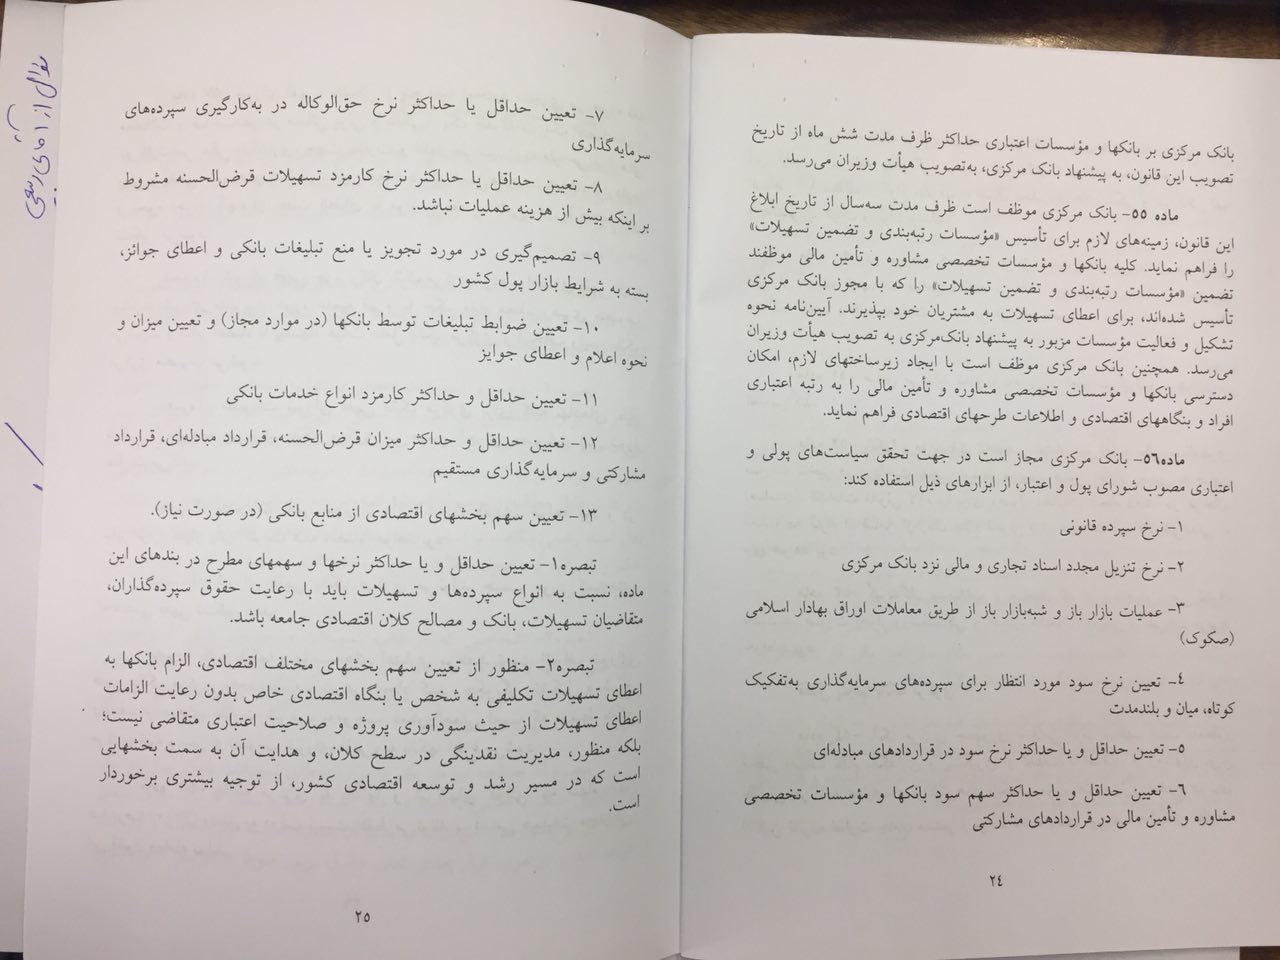 بانک مرکزی بر بانکها و مؤسسات اعتباری حداکثر ظرف مدت شش ماه از تاریخ
تصویب این قانون، به پیشنهاد بانک مرکزی، به‌تصویب هیأت وزیران می‌رسد.
ماده ۵۵- بانک مرکزی موظف است ظرف مدت سه‌سال از تاریخ ابلاغ
این قانون، زمینه‌های لازم برای تأسیس «مؤسسات رتبه‌بندی و تضمین تسهیلات»
را فراهم نماید. کلیه بانکها و مؤسسات تخصصی مشاوره و تأمین مالی موظفند
تضمین «مؤسسات رتبه‌بندی و تضمین تسهیلات» را که با مجوز بانک مرکزی
تأسیس شده‌اند، برای اعطای تسهیلات به مشتریان خود بپذیرند. آیین‌نامه نحوه
تشکیل و فعالیت مؤسسات مزبور به پیشنهاد بانک‌مرکزی به تصویب هیأت وزیران
می‌رسد. همچنین بانک مرکزی موظف است با ایجاد زیرساختهای لازم، امکان
دسترسی بانکها و مؤسسات تخصصی مشاوره و تأمین مالی را به رتبه اعتباری
افراد و بنگاههای اقتصادی و اطلاعات طرحهای اقتصادی فراهم نماید.
ماده۵۶- بانک مرکزی مجاز است در جهت تحقق سیاست‌های پولی و
اعتباری مصوب شورای پول و اعتبار، از ابزارهای ذیل استفاده کند:
۱- نرخ سپرده قانونی
۲- نرخ تنزیل مجدد اسناد تجاری و مالی نزد بانک مرکزی
۳- عملیات بازار باز و شبه‌بازار باز از طریق معاملات اوراق بهادار اسلامی
(صکوک)
۴- تعیین نرخ سود مورد انتظار برای سپرده‌های سرمایه‌گذاری به‌تفکیک
کوتاه، میان و بلندمدت
۵- تعیین حداقل و یا حداکثر نرخ سود در قراردادهای مبادله‌ای
۶- تعیین حداقل و یا حداکثر سهم سود بانکها و مؤسسات تخصصی
مشاوره و تأمین مالی در قراردادهای مشارکتی
۲۴
۷- تعیین حداقل یا حداکثر نرخ حق‌الوکاله در به‌کارگیری سپرده‌های
سرمایه‌گذاری
۸- تعیین حداقل یا حداکثر نرخ کارمزد تسهیلات قرض‌الحسنه مشروط
بر اینکه بیش از هزینه عملیات نباشد.
۹- تصمیم‌گیری در مورد تجویز یا منع تبلیغات بانکی و اعطای جوائز،
بسته به شرایط بازار پول کشور
۱۰- تعیین ضوابط تبلیغات توسط بانکها (در موارد مجاز) و تعیین میزان و
نحوه اعلام و اعطای جوایز
۱۱- تعیین حداقل و حداکثر کارمزد انواع خدمات بانکی
۱۲- تعیین حداقل و حداکثر میزان قرض‌الحسنه، قرارداد مبادله‌ای، قرارداد
مشارکتی و سرمایه‌گذاری مستقیم
۱۳- تعیین سهم بخشهای اقتصادی از منابع بانکی (در صورت نیاز).
تبصره۱- تعیین حداقل و یا حداکثر نرخها و سهمهای مطرح در بندهای این
ماده، نسبت به انواع سپرده‌ها و تسهیلات باید با رعایت حقوق سپرده‌گذاران،
متقاضیان تسهیلات، بانک و مصالح کلان اقتصادی جامعه باشد.
تبصره۲- منظور از تعیین سهم بخشهای مختلف اقتصادی، الزام بانکها به
اعطای تسهیلات تکلیفی به شخص یا بنگاه اقتصادی خاص بدون رعایت الزامات
اعطای تسهیلات از حیث سودآوری پروژه و صلاحیت اعتباری متقاضی نیست؛
بلکه منظور، مدیریت نقدینگی در سطح کلان، و هدایت آن به سمت بخشهایی
است که در مسیر رشد و توسعه اقتصادی کشور، از توجیه بیشتری برخوردار
است.
۲۵
سؤال از آقای